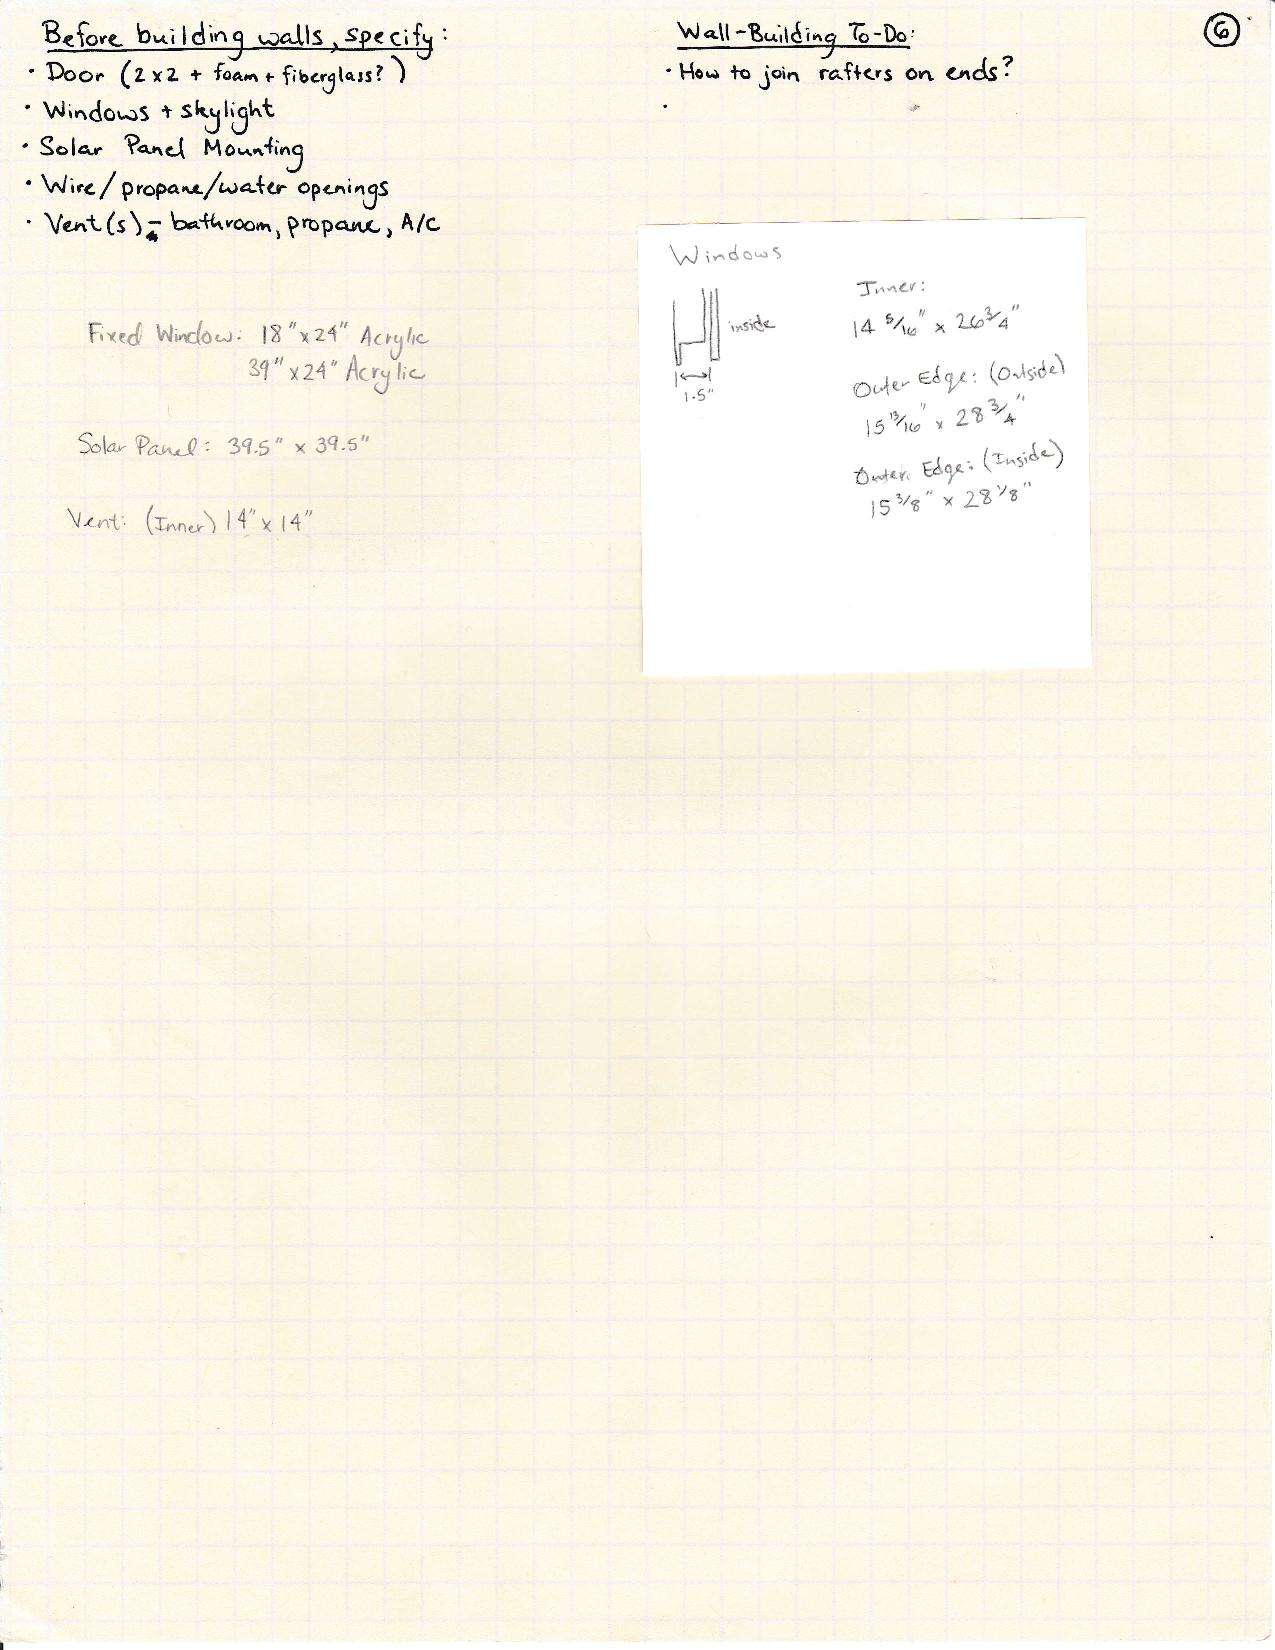 Before building walls, specify:
· Door (2x2 + foam + fiberglass?)
· Windows + skylight
· Solar Panel Mounting
· Wire/propane/water openings
· Vent(s) - bathroom, propane, A/C
Fixed Window: 18" x 24" Acrylic
39" x 24" Acrylic
Solar Panel: 39.5" x 39.5"
Vent: (Inner) 14" x 14"
Wall-Building To-Do:
· How to join rafters on ends?
·
6
Windows
inside
1.5"
Inner:
14 5/16" x 26 3/4"
Outer Edge: (Outside)
15 13/16" x 28 3/4"
Outer Edge: (Inside)
15 3/8" x 28 1/8"